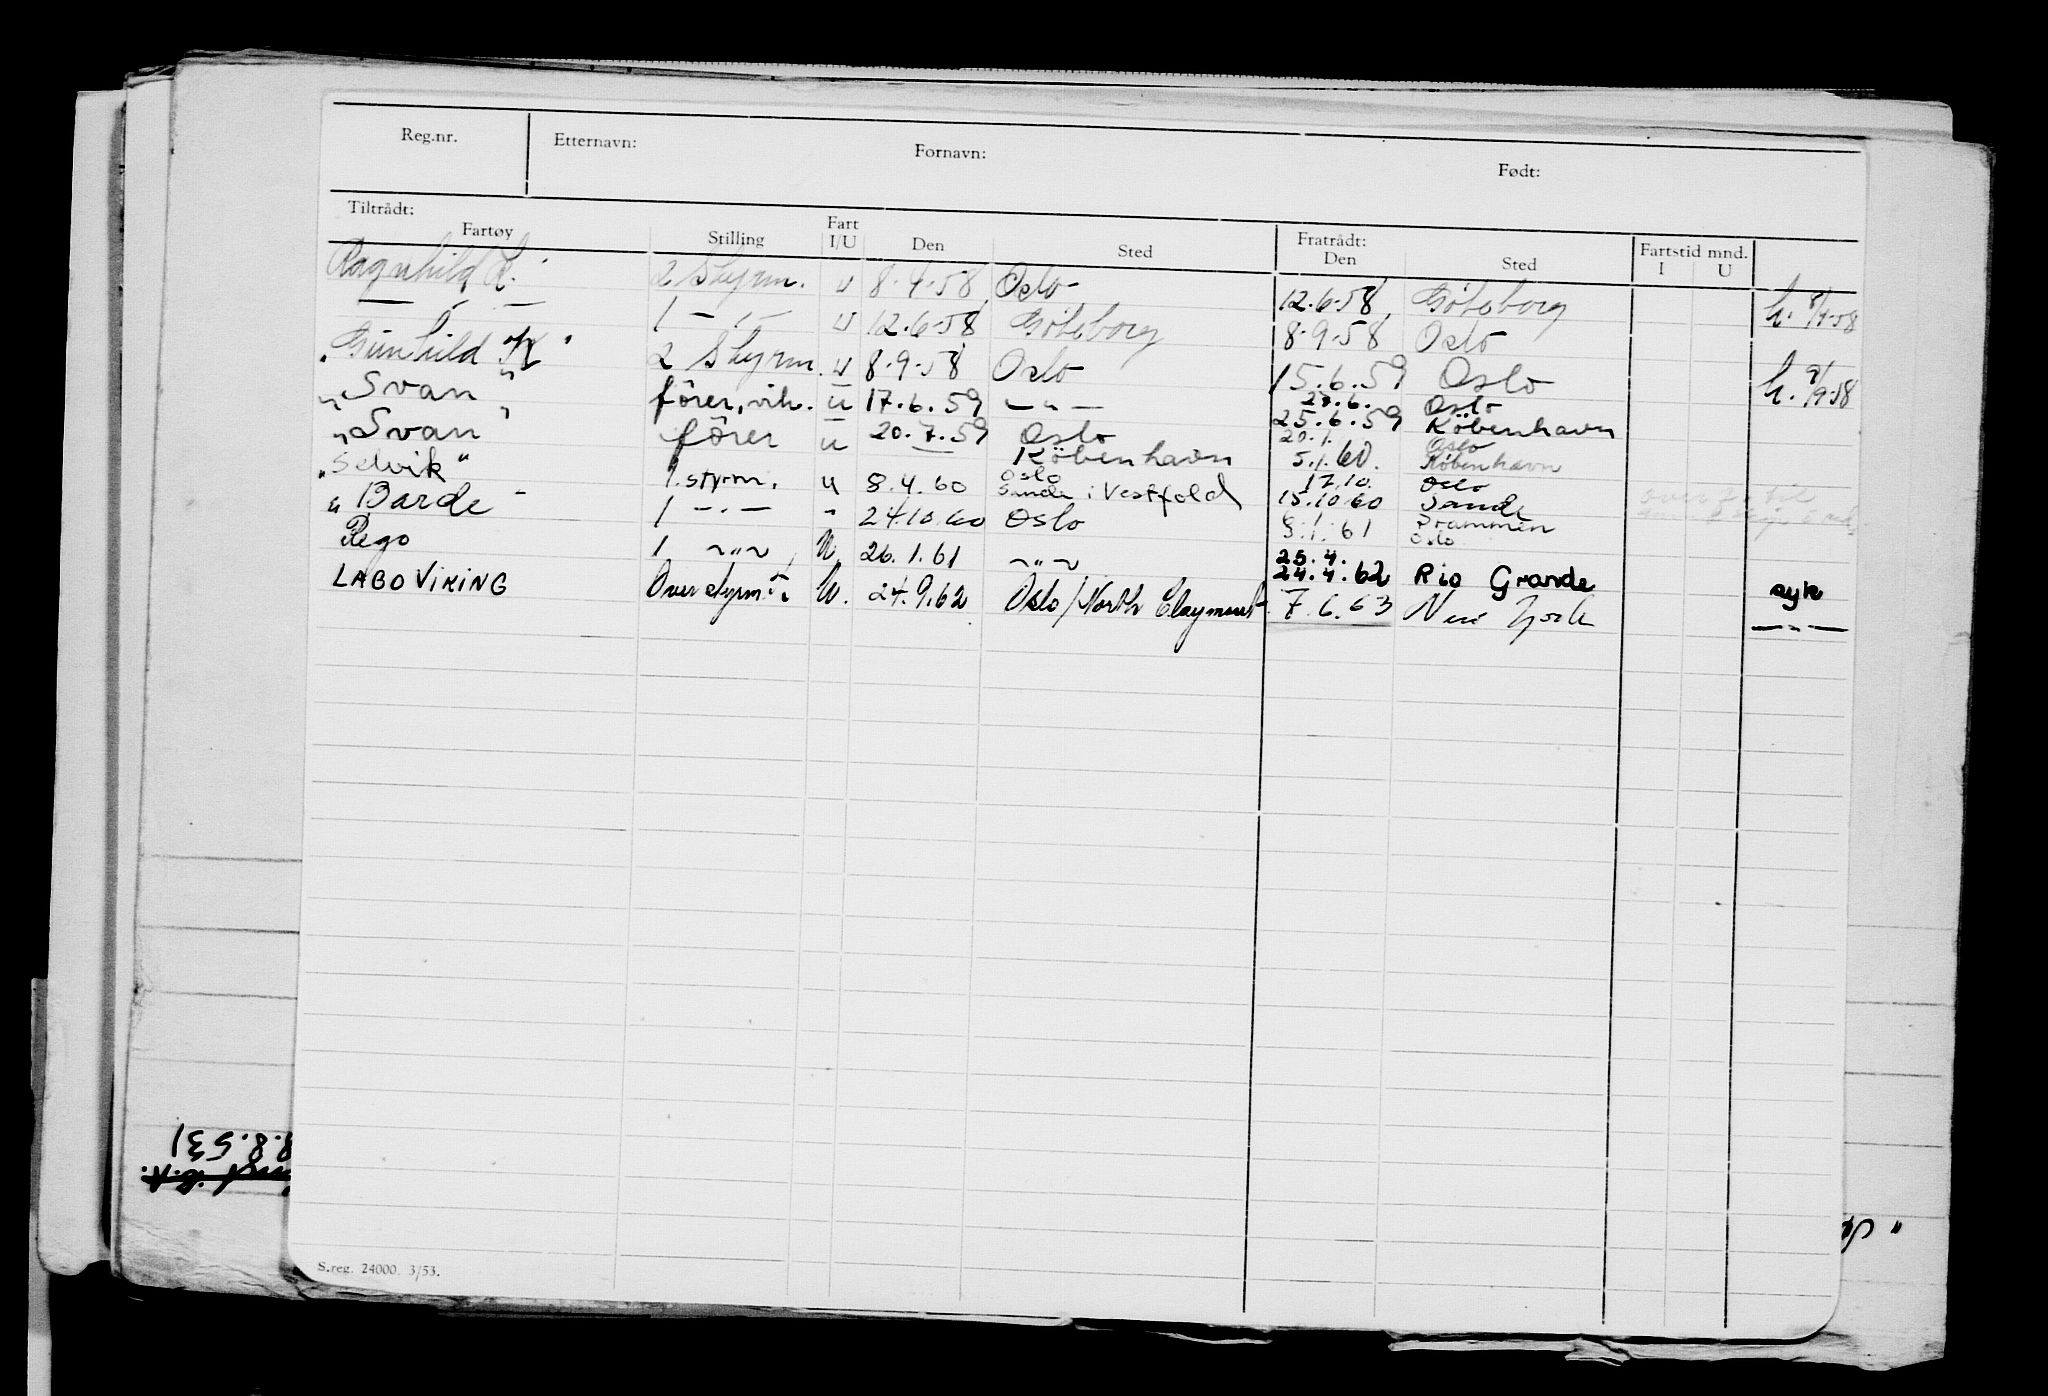 Reg.nr. Etternavn: Fornavn: Født:
Tiltrådt: Fratrådt: Fartstid mnd.
Fartøy Stilling Fart I/U Den Sted Den Sted I U
Ragnhild K. 2 Styrm. U 8.4.58 Oslo 12.6.58 Göteborg h. 8/4-58
— " — 1 — " — U 12.6.58 Göteborg 8.9.58 Oslo
"Gunhild K" 2 Styrm. U 8.9.58 Oslo 15.6.59 Oslo h. 9/9-58
"Svan" förer, vik. U 17.6.59 — " — 25.6.59 Oslo København
"Svan" förer U 20.7.59 Oslo København 20.1. 5.1.60. Oslo København
"Selvik" 1. styrm. U 8.4.60 Oslo Sande i Vestfold 17.10. 15.10.60 Oslo Sande
"Barde" 1 — " — " 24.10.60 Oslo 9.1.61 Drammen Oslo
Rego 1 ~"~ U 26.1.61 ~"~ 25.4. 24.4.62 Rio Grande syk
LAGO VIKING Overstyrm. U. 24.9.62 Oslo/North Claymont 7.6.63 New York — " —
8.8.53)
S.reg. 24000. 3/53.